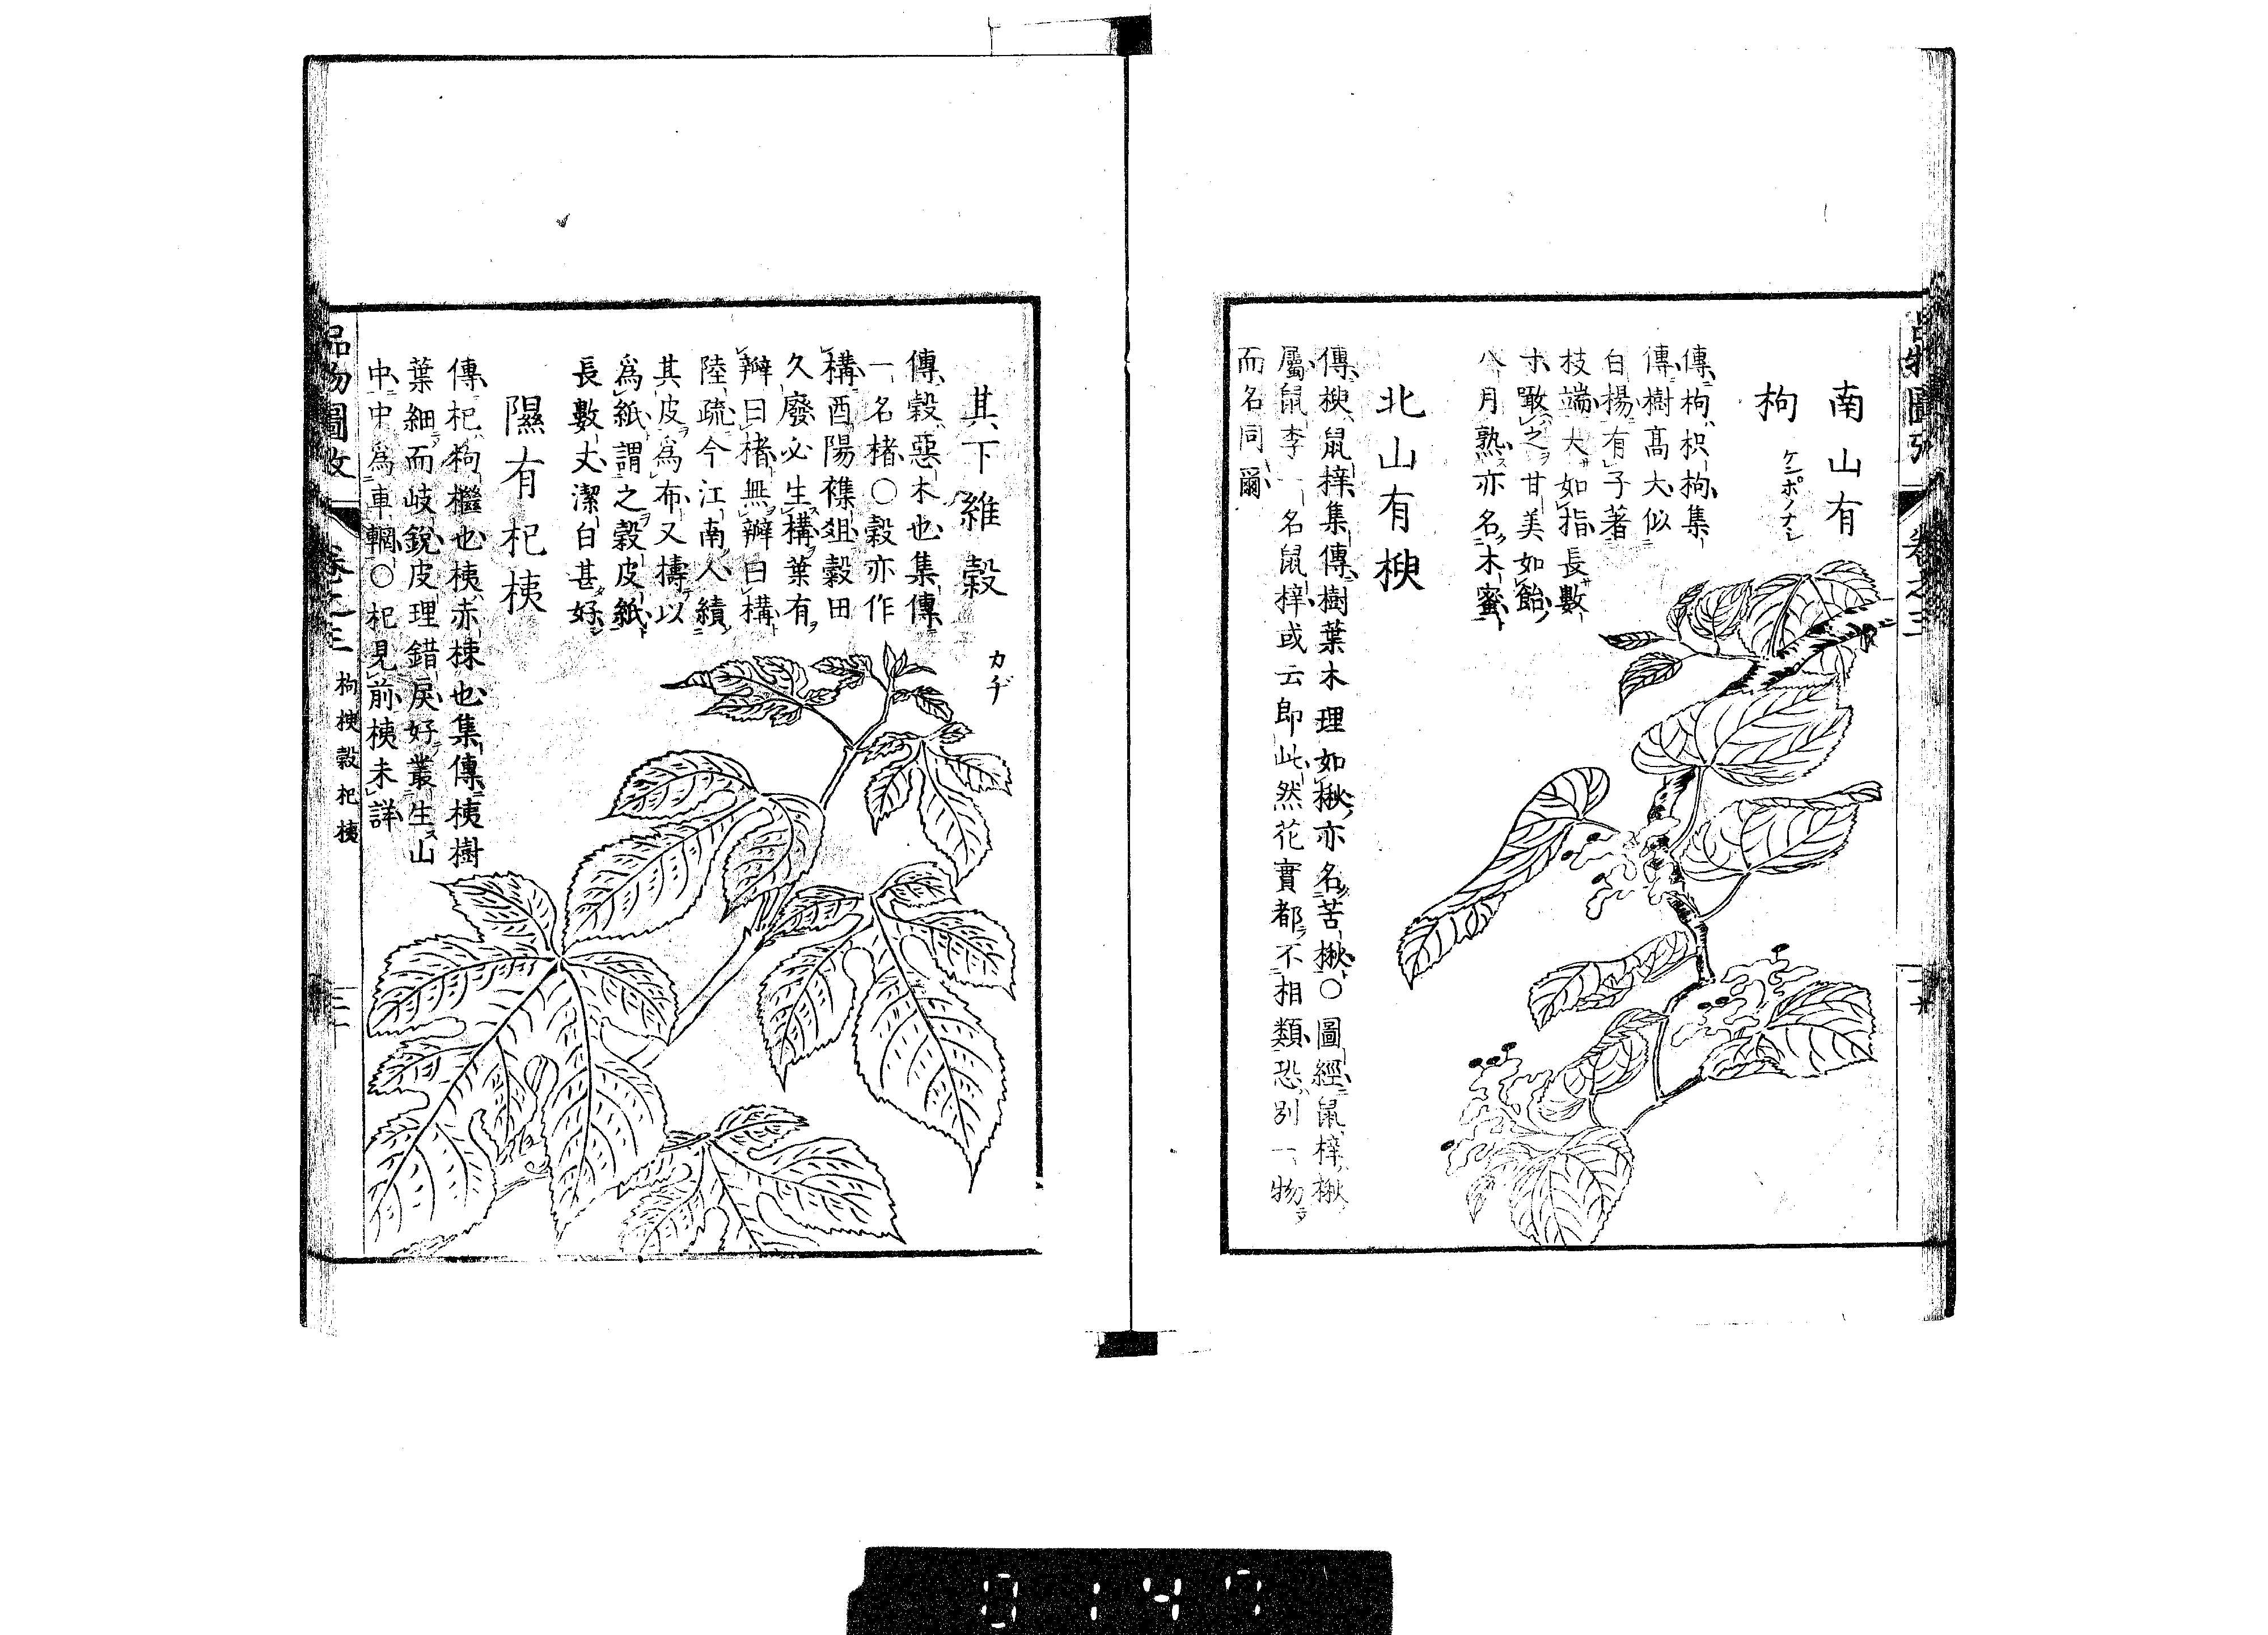 南山有
枸 ケンポノナシ
傳枸枳枸集
傳樹髙大似
白楊有子著
枝端大如指長數
寸噉之甘美如飴
八月熟亦名木蜜
北山有楰
傳楰鼠梓集傳樹葉木理如楸亦名苦楸〇圖經鼠梓楸
屬鼠李一名鼠梓或云即此然花實都不相類恐別一物
而名同爾
其下維穀
カヂ
傳穀惡木也集傳
一名楮〇穀亦作
構酉陽襍俎穀田
久廢必生構葉有
辧曰楮無辧曰構
陸疏今江南人績
其皮爲布又擣以
爲紙謂之穀皮紙
長數丈潔白甚好
隰有杞桋
傳杞枸檵也桋赤栜也集傳桋樹
葉細而岐銳皮理錯戾好叢生山
中中爲車輞〇杞見前桋未詳
品物圖攷 卷之三 枸楰穀杞桋
0147